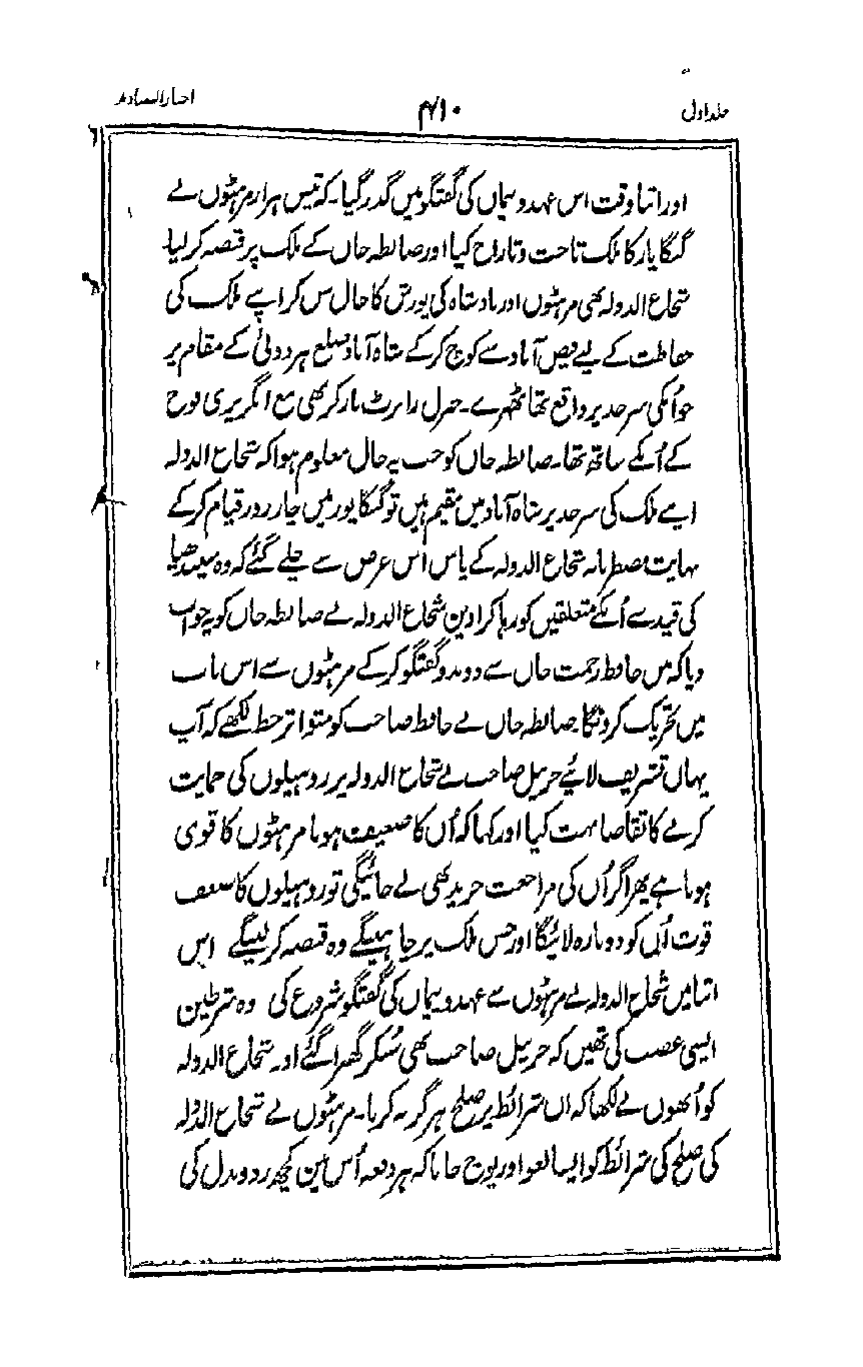 جلد اول ۴۱۰ اخبار الصنادید
اور اتنا وقت اس عہد و پیماں کی گفتگو میں گذر گیا۔ کہ تیس ہزار مرہٹوں نے
گنگا پار کا ملک تاخت و تاراج کیا اور ضابطہ خاں کے ملک پر قبضہ کر لیا
شجاع الدولہ بھی مرہٹوں اور بادشاہ کی یورش کا حال سن کر اپنے ملک کی
حفاظت کے لیے فیض آباد سے کوچ کر کے شاہ آباد ضلع ہردوئی کے مقام پر
جو اُنکی سرحد پر واقع تھا ٹھہرے۔ جنرل رابرٹ بارکر بھی مع انگریزی فوج
کے اُنکے ساتھ تھا۔ ضابطہ خاں کو جب یہ حال معلوم ہوا کہ شجاع الدولہ
اپنے ملک کی سرحد پر شاہ آباد میں مقیم ہیں تو گنگاپور میں چار روز قیام کر کے
نہایت مضطربانہ شجاع الدولہ کے پاس اس غرض سے چلے گئے کہ وہ سیندھیا
کی قید سے اُنکے متعلقین کو رہا کرا دین شجاع الدولہ نے ضابطہ خاں کو یہ جواب
دیا کہ میں حافظ رحمت خاں سے دو بدو گفتگو کر کے مرہٹوں سے اس باب
میں تحریک کرونگا۔ ضابطہ خاں نے حافظ صاحب کو متواتر خط لکھے کہ آپ
یہاں تشریف لائیے جرنیل صاحب نے شجاع الدولہ پر روہیلوں کی حمایت
کرنے کا تقاضا بہت کیا اور کہا کہ اُن کا ضعیف ہونا مرہٹوں کا قوی
ہونا ہے پھر اگر اُن کی مراجعت خرید بھی لے جائیگی تو روہیلوں کا ضعف
قوت اُن کو دوبارہ لائیگا اور جس ملک پر چاہینگے وہ قبضہ کر لینگے اس
اثنا میں شجاع الدولہ نے مرہٹوں سے عہد و پیماں کی گفتگو شروع کی وہ شرطین
ایسی غضب کی تھیں کہ جرنیل صاحب بھی سُنکر گھبرا گئے اور شجاع الدولہ
کو اُنھوں نے لکھا کہ ان شرائط پر صلح ہرگز نہ کرنا۔ مرہٹوں نے شجاع الدولہ
کی صلح کی شرائط کو ایسا لغو اور پوچ جانا کہ ہر دفعہ اُس مین کچھ رد و بدل کی